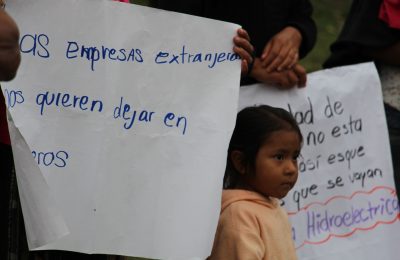 AS EMPRESAS EXTRANJERA
NOS QUIEREN DEJAR EN
EROS
dad de
no esta
así esque
s que se vayan
Hidroelectric